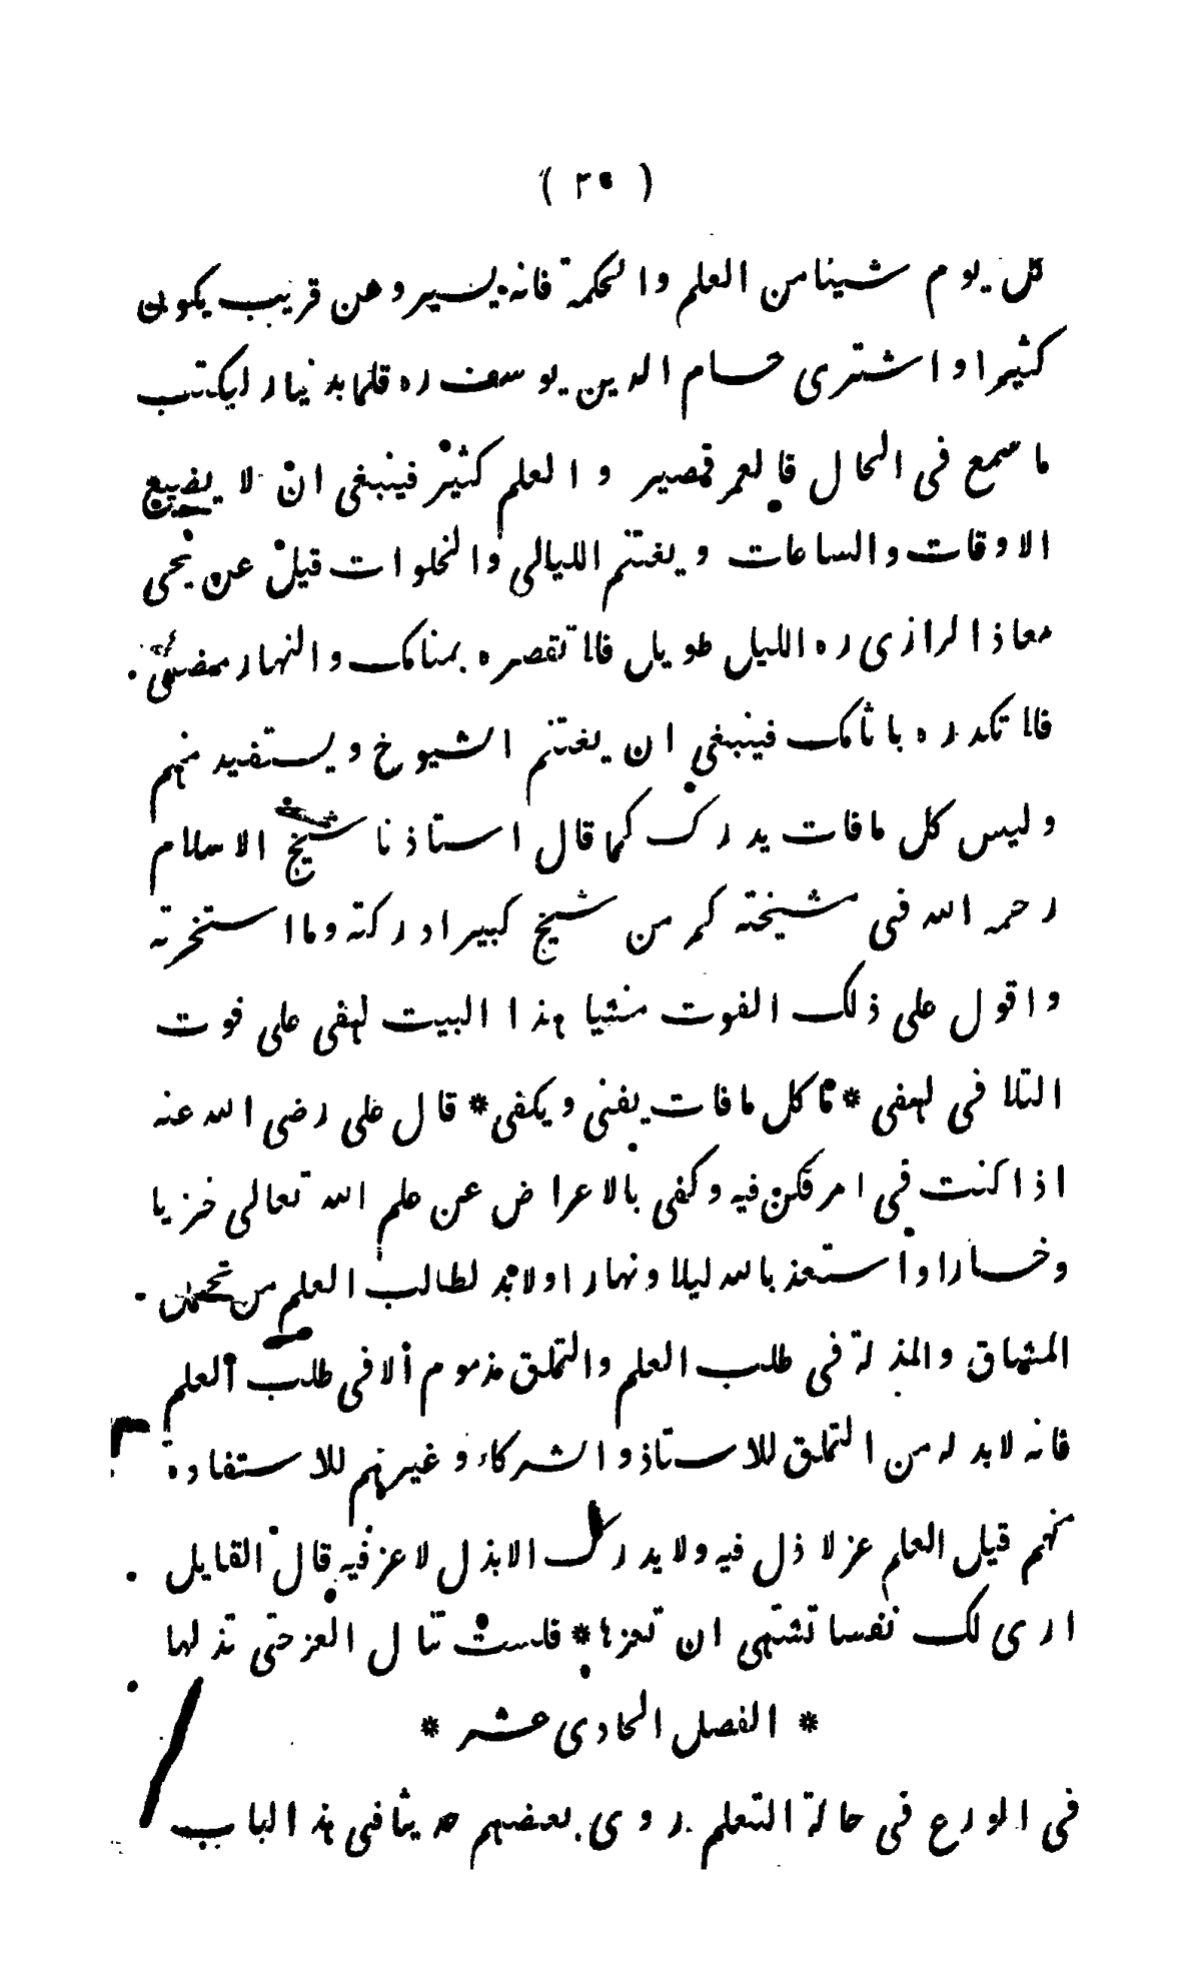 ( ٣٥ )
كل يوم شيئا من العلم والحكمة فانه يسير وعن قريب يكون
كثيرا واشترى حسام الدين يوسف ره قلما بدنيار ليكتب
ما سمع فى الحال فالعمر قصير والعلم كثير فينبغى ان لا يضيع
الاوقات والساعات ويغتنم الليالى والخلوات قيل عن يحى
معاذ الرازى ره الليل طويل فلا تقصره بمنامك والنهار مضيئ
فلا تكدره باثامك فينبغى ان يغتنم الشيوخ ويستفيد منهم
وليس كل ما فات يدرك كما قال استاذنا شيخ الاسلام
رحمه الله فى مشيخته كم من شيخ كبير ادركته وما استخرته
واقول على ذلك الفوت منشيا هذا البيت لهفى على فوت
التلا فى لهفى * ما كل ما فات يفنى ويكفى * قال على رضى الله عنه
اذا كنت فى امر فكن فيه وكفى بالاعراض عن علم الله تعالى خزيا
وخسارا واستعذ بالله ليلا ونهارا ولابد لطالب العلم من تحمل
المشاق والمذلة فى طلب العلم والتملق مذموم الا فى طلب العلم
فانه لابد له من التملق للاستاذ والشركاء وغيرهم للاستفادة
منهم قيل العلم عز لا ذل فيه ولا يدرك الا بذل لا عز فيه قال القايل
ارى لك نفسا تشتهى ان تعزها * فلست تنال العز حتى تذلها
* الفصل الحادى عشر *
فى الورع فى حالة التعلم روى بعضهم حديثا فى هذ الباب